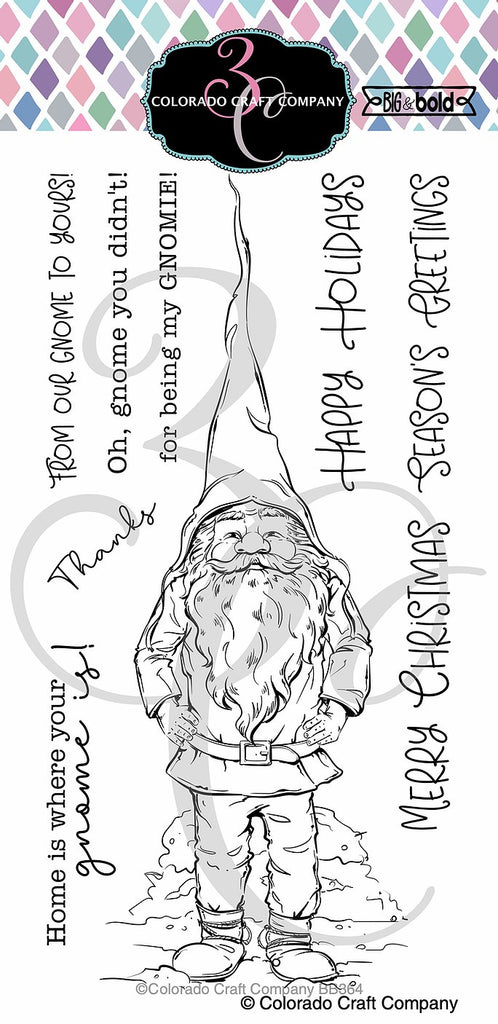 3C
COLORADO CRAFT COMPANY
BIG & bold
FROM OUR GNOME TO YOURS!
Oh, gnome you didn't!
for being my GNOMIE!
Thanks
Home is where your
gnome is!
HAPPY HOLIDAYS
SEASON'S GREETINGS
MERRY CHRISTMAS
3C
©Colorado Craft Company BB364
© Colorado Craft Company